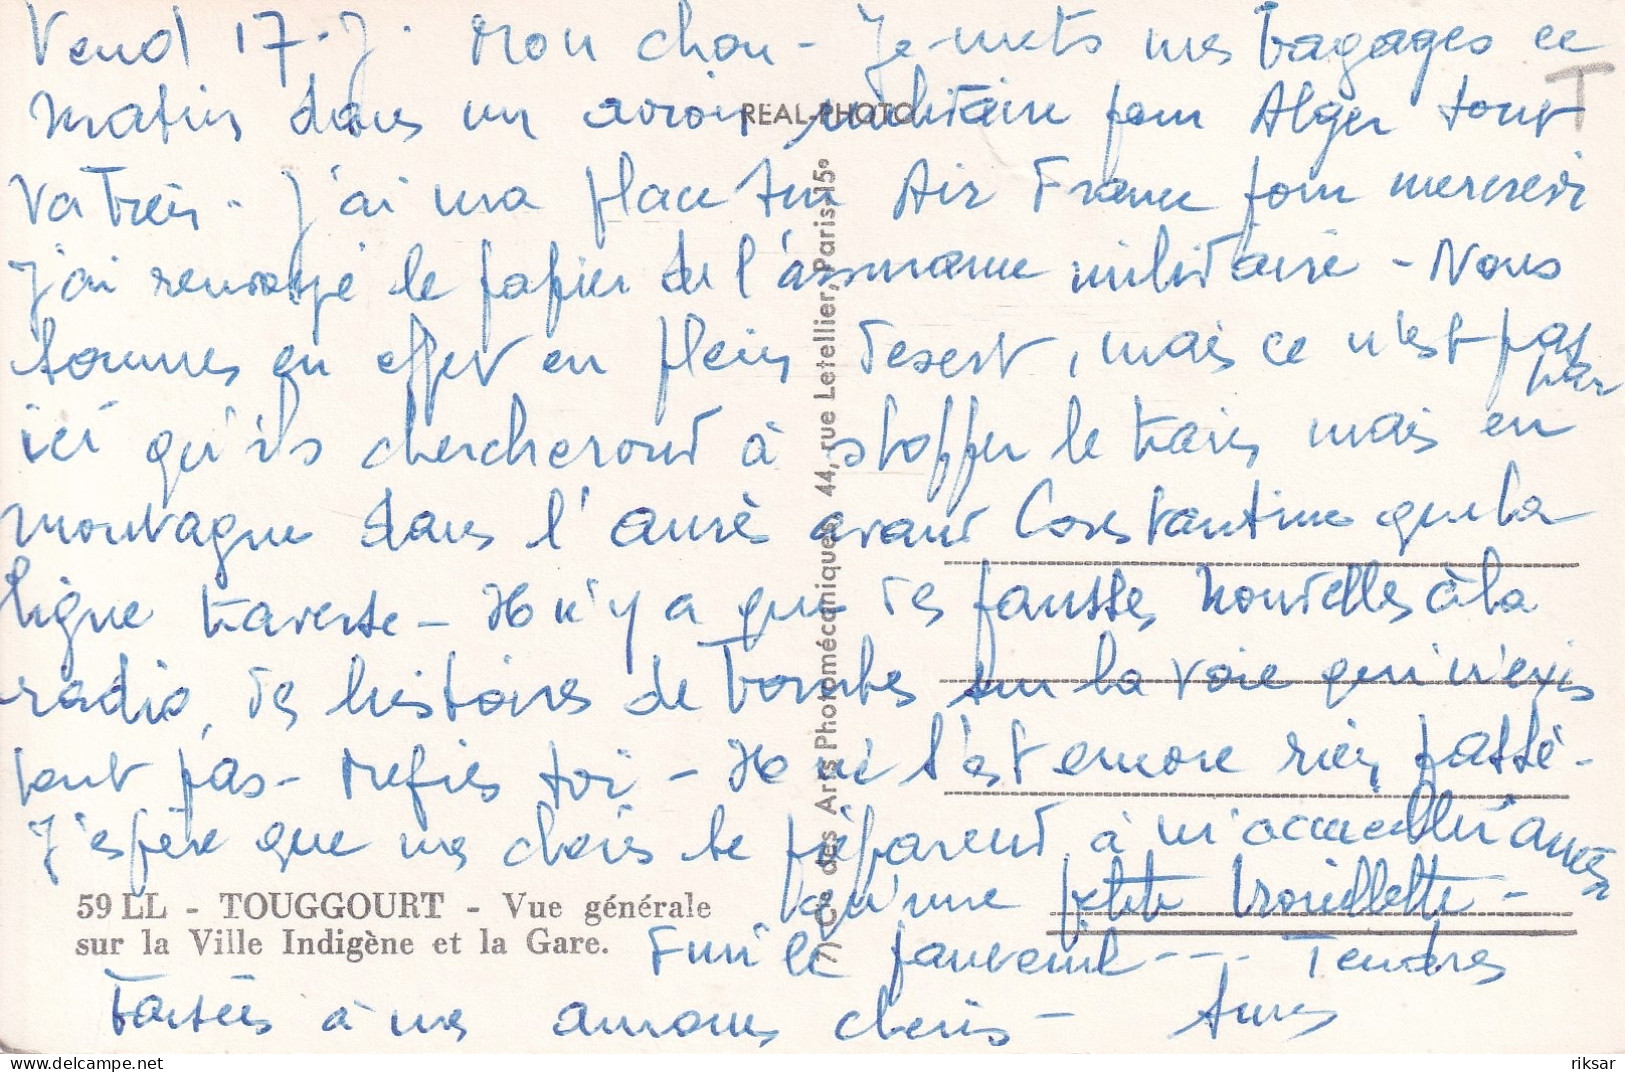 Vend 17. J. Mon chou - Je mets mes bagages ce
matin dans un avion militaire pour Alger tout
va bien. J'ai ma place sur Air France pour mercredi
J'ai renvoyé le papier de l'assurance militaire - Nous
sommes en effet en plein desert, mais ce n'est pas par
ici qu'ils chercheront à stopper le train mais en
montagne dans l'aurès avant Constantine que la
ligne traverse - Il n'y a que des fausses nouvelles à la
radio, des histoires de bombes sur la voie qui n'exis
tent pas - Méfies toi - Il ne s'est encore rien passé -
J'espère que mes chéris se préparent à m'accueillir avec
qu'une petite brouillette -
le fauteuil - - - . Tendres
baisers à mes amours chéris -
REAL-PHOTO
Cie des Arts Photomécaniques, 44, rue Letellier, Paris-15e
59 LL - TOUGGOURT - Vue générale
sur la Ville Indigène et la Gare.
T
riksar
delcampe.net